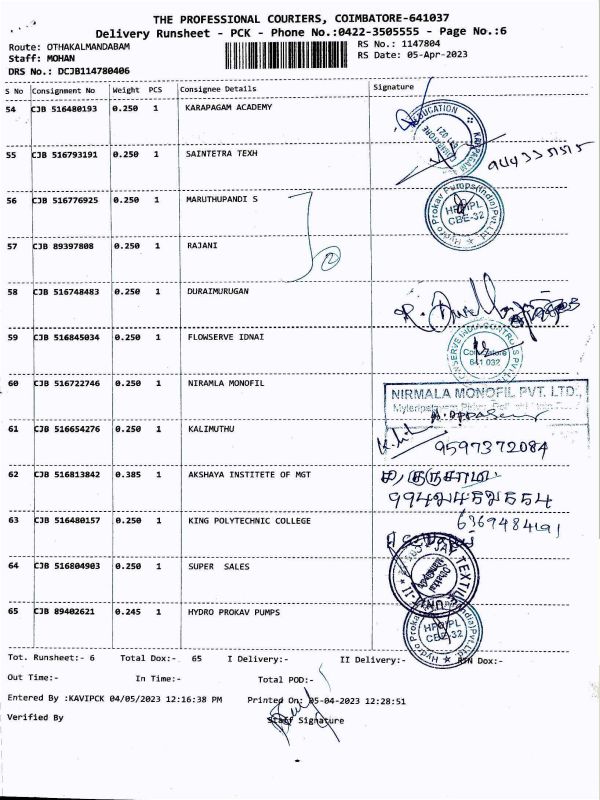 THE PROFESSIONAL COURIERS, COIMBATORE-641037
Delivery Runsheet - PCK - Phone No.:0422-3505555 - Page No.:6
Route: OTHAKALMANDABAM RS No.: 1147804
Staff: MOHAN RS Date: 05-Apr-2023
DRS No.: DCJB114780406
S No Consignment No Weight PCS Consignee Details Signature
54 CJB 516480193 0.250 1 KARAPAGAM ACADEMY
EDUCATION
COIMBATORE
641 021
55 CJB 516793191 0.250 1 SAINTETRA TEXH
56 CJB 516776925 0.250 1 MARUTHUPANDI S
Hydro Prokav Pumps(India)Pvt.Ltd
CBE-32
57 CJB 89397808 0.250 1 RAJANI
58 CJB 516748483 0.250 1 DURAIMURUGAN
59 CJB 516845034 0.250 1 FLOWSERVE IDNAI
Coimbatore
641 032
60 CJB 516722746 0.250 1 NIRAMLA MONOFIL
NIRMALA MONOFIL PVT. LTD.,
61 CJB 516654276 0.250 1 KALIMUTHU
9597372084
62 CJB 516813842 0.385 1 AKSHAYA INSTITETE OF MGT
63 CJB 516480157 0.250 1 KING POLYTECHNIC COLLEGE
64 CJB 516804903 0.250 1 SUPER SALES
UNIT-II
65 CJB 89402621 0.245 1 HYDRO PROKAV PUMPS
CBE-32
Tot. Runsheet:- 6 Total Dox:- 65 I Delivery:- II Delivery:- RTN Dox:-
Out Time:- In Time:- Total POD:-
Entered By :KAVIPCK 04/05/2023 12:16:38 PM Printed On: 05-04-2023 12:28:51
Verified By Staff Signature